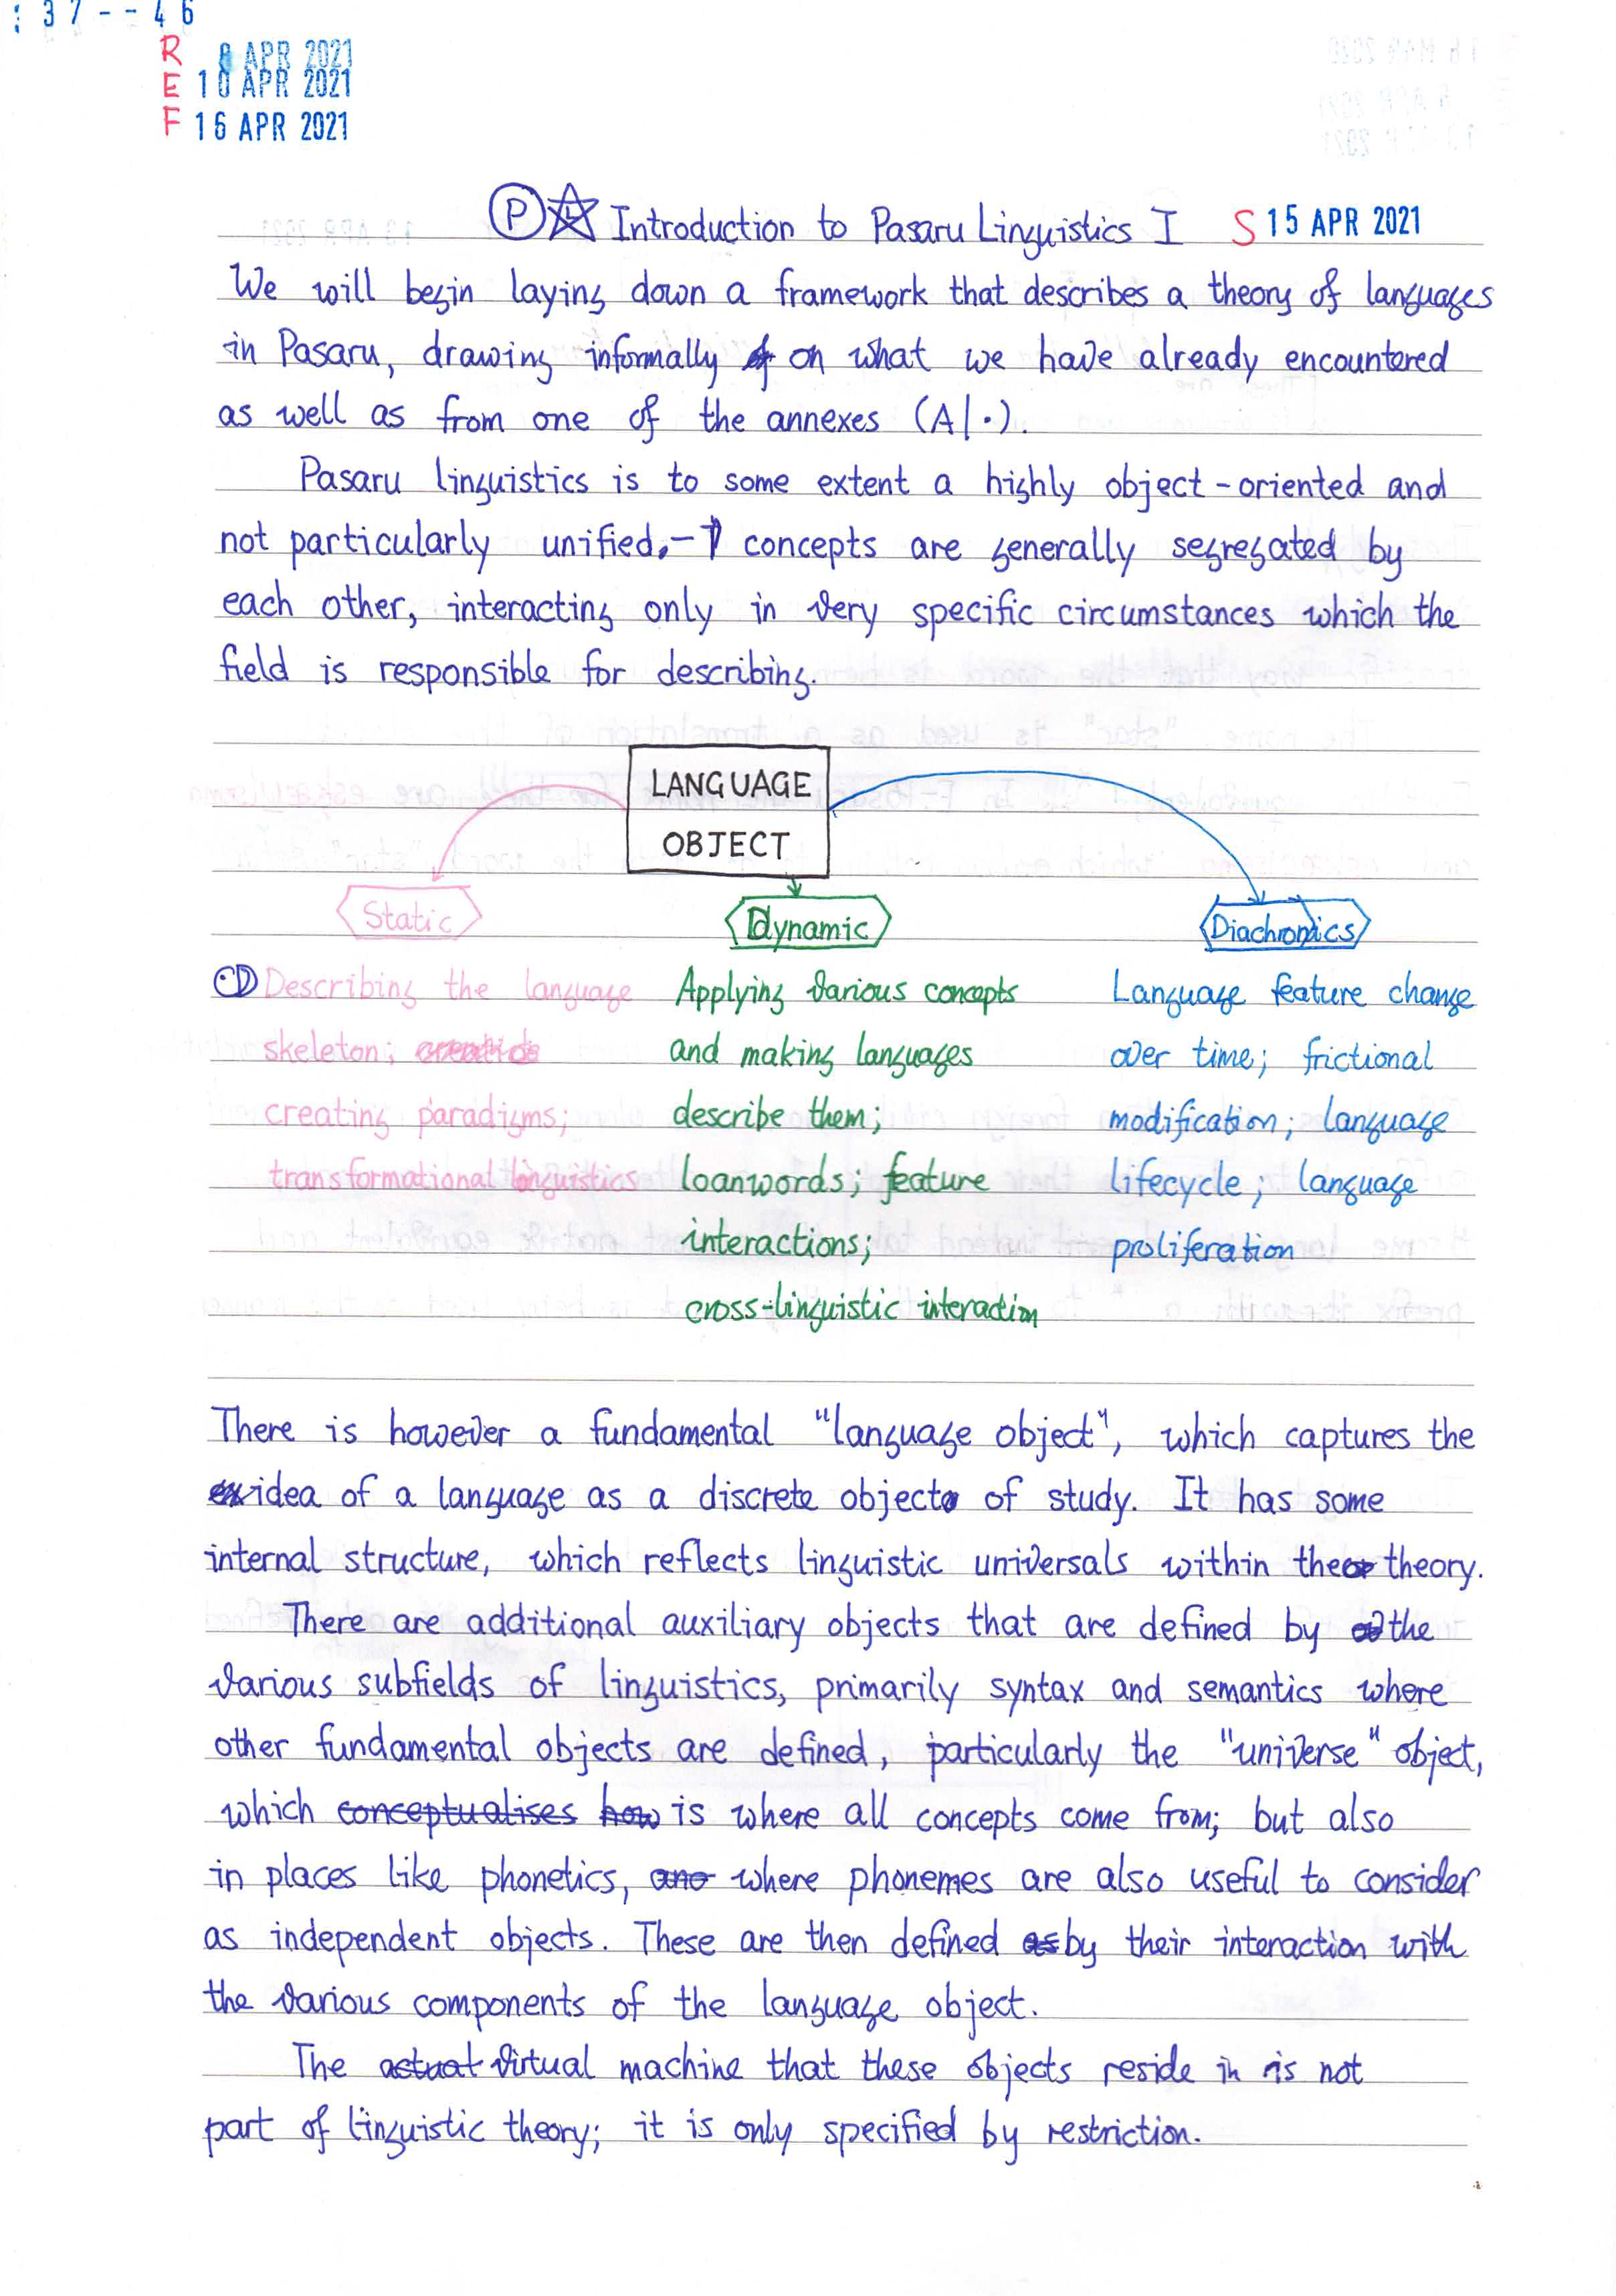 : 37--46
R 8 APR 2021
E 10 APR 2021
F 16 APR 2021
P Introduction to Pasaru Linguistics I S 15 APR 2021
We will begin laying down a framework that describes a theory of languages
in Pasaru, drawing informally on what we have already encountered
as well as from one of the annexes (A|·).
Pasaru linguistics is to some extent a highly object-oriented and
not particularly unified. concepts are generally segregated by
each other, interacting only in very specific circumstances which the
field is responsible for describing.
LANGUAGE
OBJECT
Static
Dynamic
Diachronics
Describing the language
skeleton;
creating paradigms;
transformational linguistics
Applying various concepts
and making languages
describe them;
loanwords; feature
interactions;
cross-linguistic interaction
Language feature change
over time; frictional
modification; language
lifecycle; language
proliferation
There is however a fundamental "language object", which captures the
idea of a language as a discrete object of study. It has some
internal structure, which reflects linguistic universals within the theory.
There are additional auxiliary objects that are defined by the
various subfields of linguistics, primarily syntax and semantics where
other fundamental objects are defined, particularly the "universe" object,
which conceptualises how is where all concepts come from; but also
in places like phonetics, where phonemes are also useful to consider
as independent objects. These are then defined as by their interaction with
the various components of the language object.
The actual virtual machine that these objects reside in is not
part of linguistic theory; it is only specified by restriction.